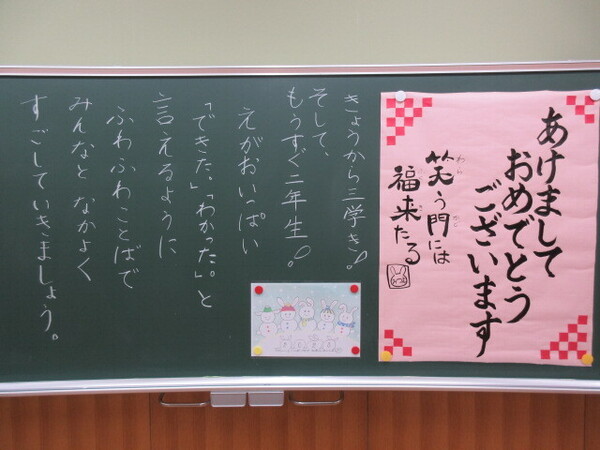 あけまして
おめでとう
ございます
笑う門には
福来たる
きょうから三学き!
そして、
もうすぐ二年生!
えがおいっぱい
「できた。」「わかった。」と
言えるように
ふわふわことばで
みんなとなかよく
すごしていきましょう。